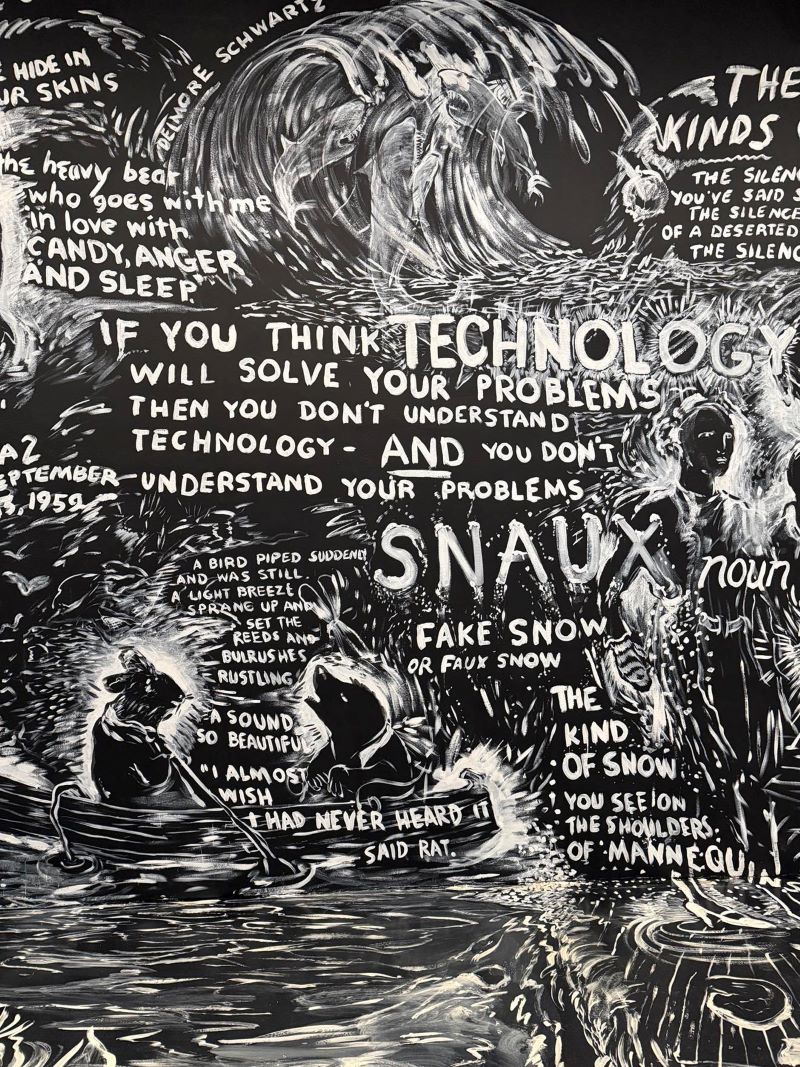 HIDE IN
UR SKINS
DELMORE SCHWARTZ
the heavy bear
who goes with me
in love with
CANDY, ANGER
AND SLEEP
THE
KINDS
THE SILENC
YOU'VE SAID S
THE SILENCE
OF A DESERTED
THE SILENC
IF YOU THINK TECHNOLOGY
WILL SOLVE YOUR PROBLEMS
THEN YOU DON'T UNDERSTAND
TECHNOLOGY - AND YOU DON'T
UNDERSTAND YOUR PROBLEMS
A 2
EPTEMBER
3, 1959
SNAUX noun
FAKE SNOW
OR FAUX SNOW
THE
KIND
OF SNOW
YOU SEE ON
THE SHOULDERS
OF MANNEQUINS
A BIRD PIPED SUDDENLY
AND WAS STILL.
A LIGHT BREEZE
SPRANG UP AND
SET THE
REEDS AND
BULRUSHES
RUSTLING
A SOUND
SO BEAUTIFUL
"I ALMOST
WISH
I HAD NEVER HEARD IT
SAID RAT.